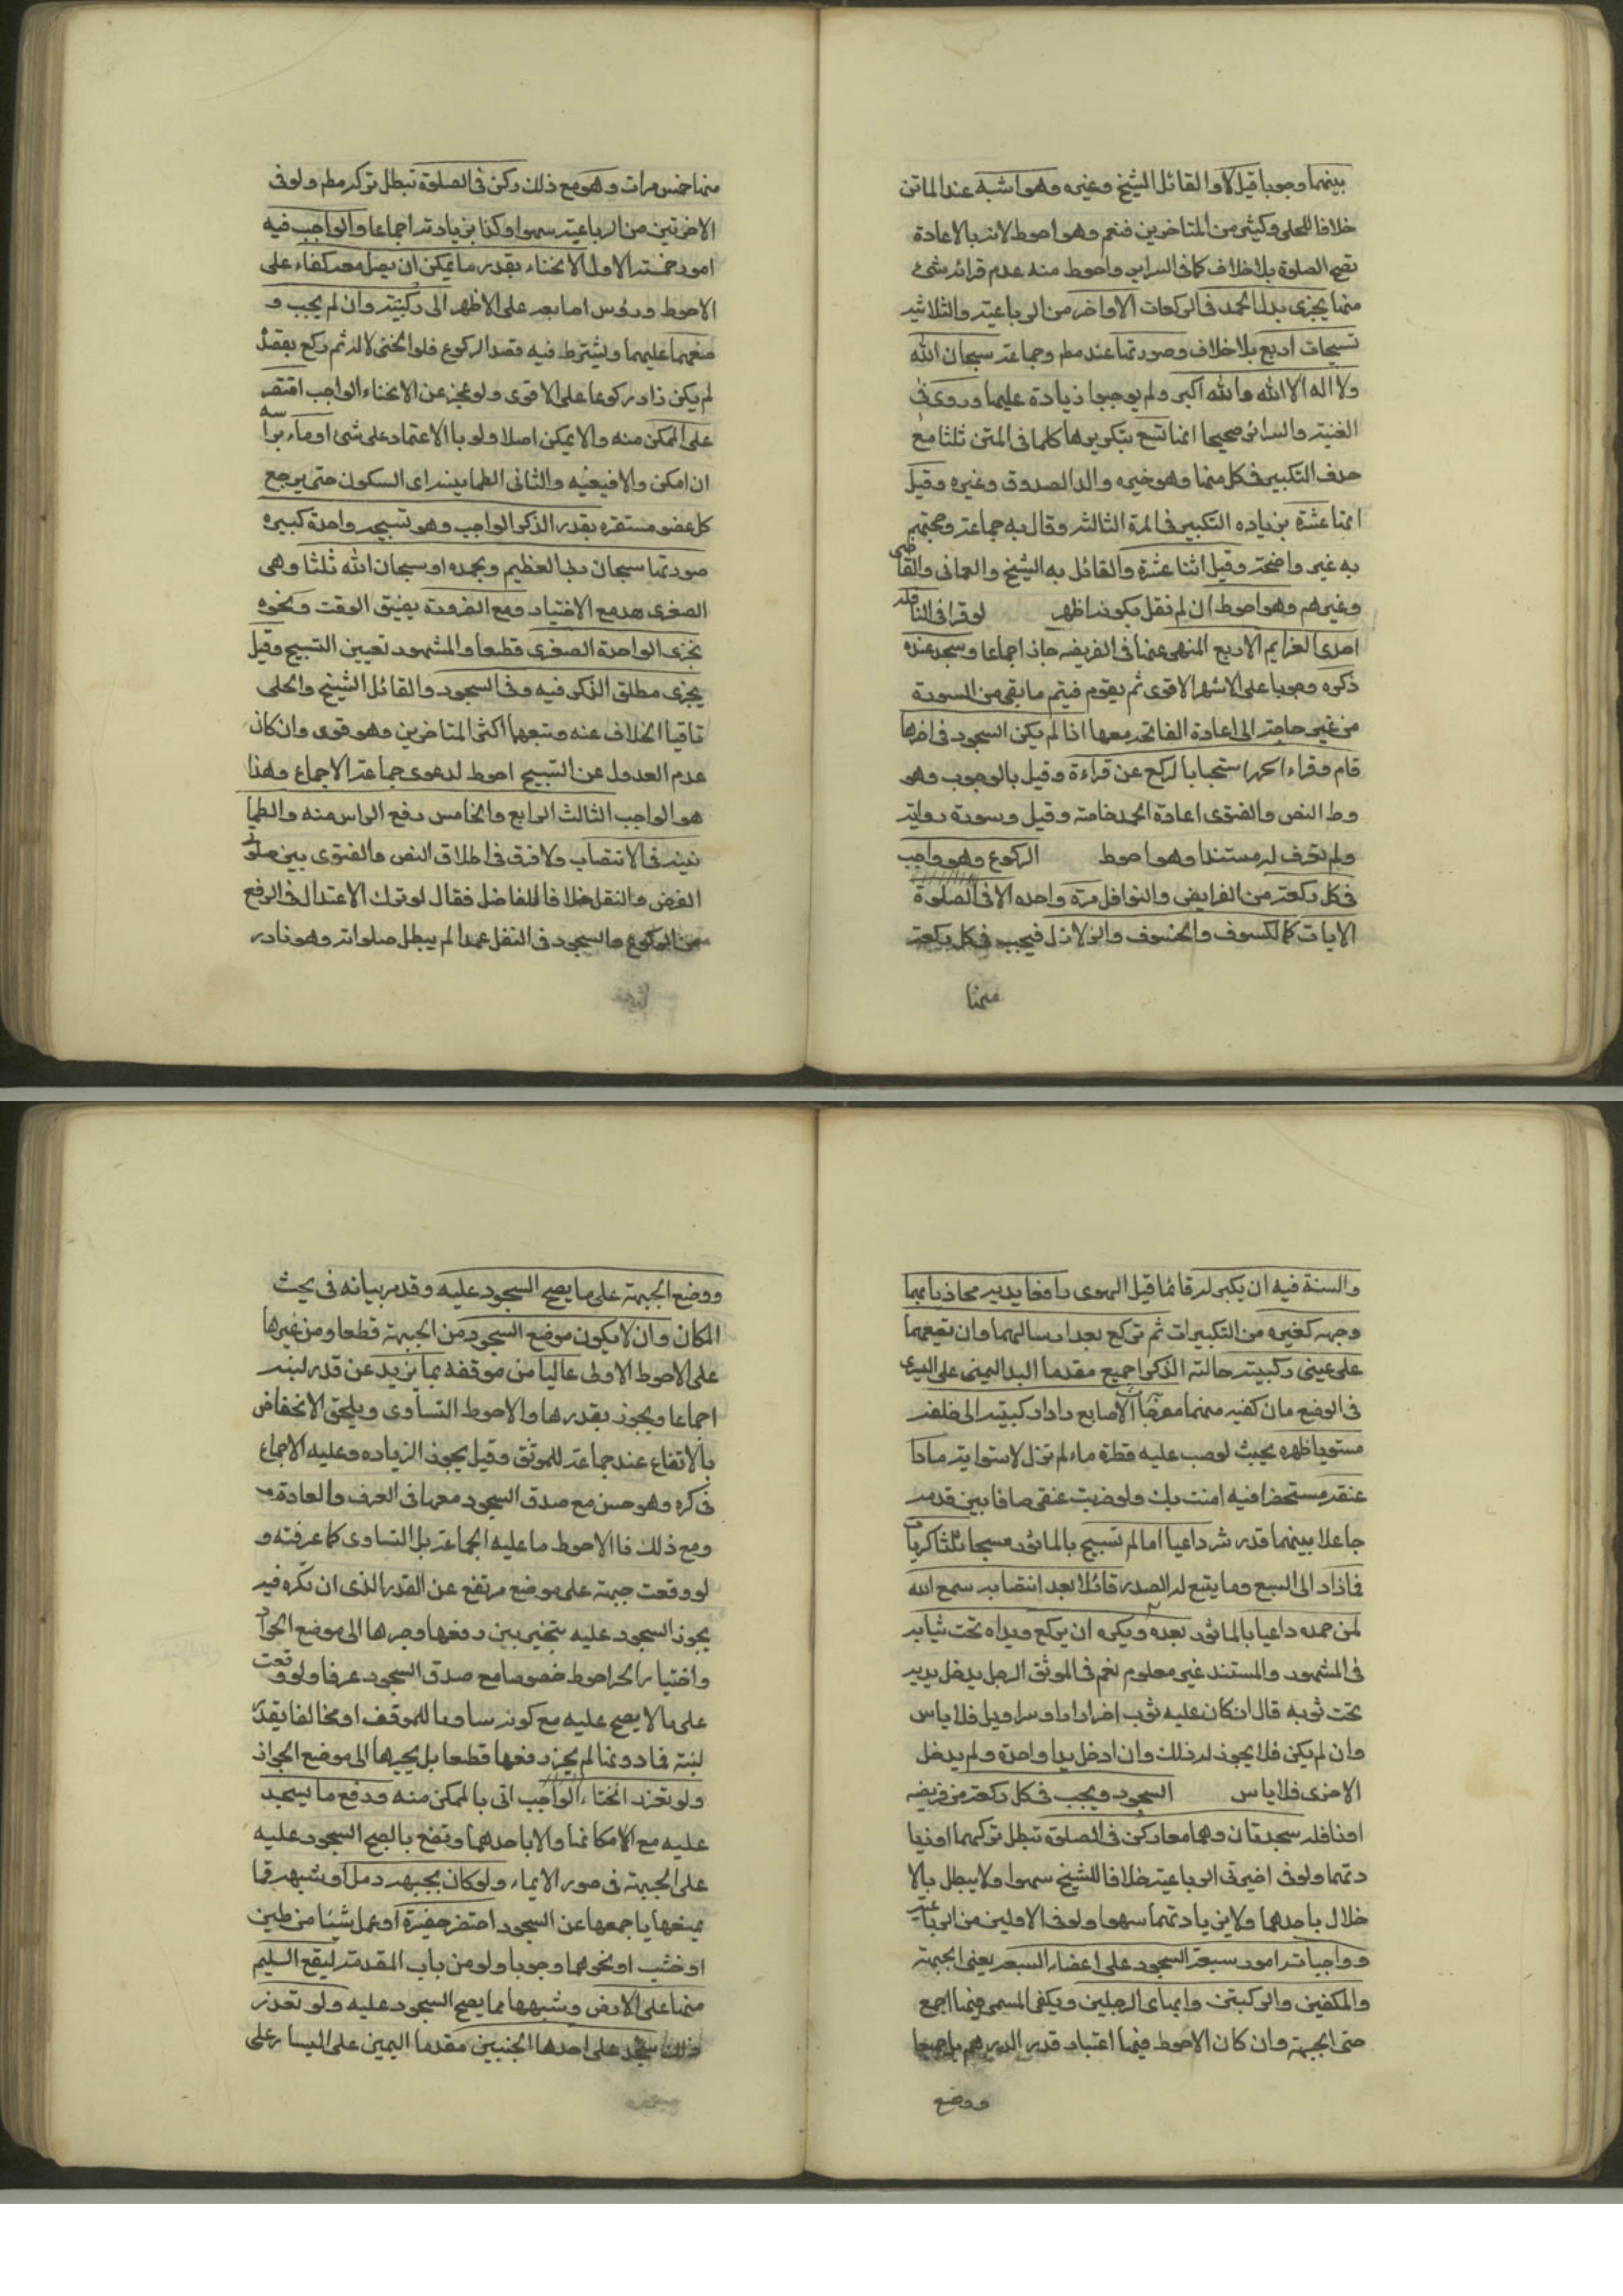 بينهما وجوبا قيل لا والقائل الشيخ وغيره وهو اشبه عند الماتن
خلافا للحلي وكثير من المتاخرين فنعم وهو احوط لانه بالاعادة
تصح الصلوة بلا خلاف كما في السراير واحوط منه عدم قرائة شئ
منها يجزى بدل الحمد في الركعات الاواخر من الرباعية والثلاثية
تسبيحات اربع بلا خلاف وصورتها عند مط وجماعة سبحان الله
ولا اله الا الله والله اكبر ولم يوجبوا زيادة عليها وروى في
الغنية والسرائر صحيحا انها تسع بتكريرها كلها في المتن ثلثا مع
حذف التكبير في كل منها وهو خيره والد الصدوق وغيره وقيل
انها عشرة بزياده التكبير في المرة الثالثة وقال به جماعة وحجتهم
به غير واضحة وقيل اثنا عشرة والقائل به الشيخ والعماني والقاضى
وغيرهم وهو احوط ان لم نقل بكونه اظهر لو قرا في النافله
احدى العزايم الاربع المنهى عنها في الفريضه جاز اجماعا وسجد عنده
ذكره وجوبا على الاشهر الاقوى ثم يقوم فيتم ما بقى من السورة
من غير حاجة الى اعادة الفاتحة معها اذا لم يكن السجود في اخرها
قام وقراء الحمد استحبابا لركع عن قراءة وقيل بالوجوب وهو
وط النص والفتوى اعادة الحمد خاصة وقيل وسورة رواية
ولم نعرف له مستندا وهو احوط الركوع وهو واجب
في كل ركعة من الفرايض والنوافل مرة واحده الا في الصلوة
الايات كالكسوف والخسوف والزلازل فيجب في كل ركعة
منها
منها خمس مرات وهو مع ذلك ركن في الصلوة تبطل بتركه مط ولو في
الاخرتين من الرباعية سهوا وكذا بزيادته اجماعا والواجب فيه
امور خمسة الاول الانحناء بقدر ما يمكن ان يصل معه كفاه على
الاحوط ورؤس اصابعه على الاظهر الى ركبتيه وان لم يجب و
ضعهما عليهما ويشترط فيه قصد الركوع فلو انحنى لا له ثم ركع بقصده
لم يكن زاد ركوعا على الاقوى ولو عجز عن الانحناء الواجب اقتصر
على الممكن منه والا يمكن اصلا ولو بالاعتماد على شئ اوماء براسه
ان امكن والا فبعينيه والثاني الطمانينة اى السكون حتى يرجع
كل عضو مستقره بقدر الذكر الواجب وهو تسبيحة واحدة كبيره
صورتها سبحان ربي العظيم وبحمده او سبحان الله ثلثا وهى
الصغرى هذه مع الاختيار ومع الضرورة بضيق الوقت ونحوه
يجزى الواحدة الصغرى قطعا والمشهور تعيين التسبيح وقيل
يجزى مطلق الذكر فيه وفي السجود والقائل الشيخ والحلى
نافيا الخلاف عنه وتبعهما اكثر المتاخرين وهو قوى وان كان
عدم العدول عن التسبيح احوط لدعوى جماعة الاجماع وهذا
هو الواجب الثالث الرابع والخامس رفع الراس منه والطما
نينة في الانتصاب ولا فرق في اطلاق النص والفتوى بين صلوة
الفرض والنفل خلافا للفاضل فقال لو ترك الاعتدال في الرفع
من الركوع والسجود في النفل عمدا لم يبطل صلواته وهو نادر
والسنة فيه ان يكبر له قائما قبل الهوى رافعا يديه محاذيا بهما
وجهه كغيره من التكبيرات ثم تركع بعد ارسالهما وان تضعهما
على عينى ركبتيه حالة الذكر اجمع مقدما اليد اليمنى على اليسرى
في الوضع وان كفيه منهما مفرجات الاصابع رادا ركبتيه الى خلفه
مستويا ظهره بحيث لو صب عليه قطرة ماء لم تزل لاستوايه مادا
عنقه مستحضرا فيه امنت بك ولو ضربت عنقى صافا بين قدميه
جاعلا بينهما قدر شبر داعيا امام التسبيح بالماثور مسبحا ثلثا كبريات
فازاد الى السبع وما يتسع له الصدر قائلا بعد انتصابه سمع الله
لمن حمده داعيا بالماثور بعده ويكره ان يركع ويداه تحت ثيابه
في المشهور والمستند غير معلوم نعم في الموثق الرجل يدخل يديه
تحت ثوبه قال ان كان عليه ثوب اخر ازار او سراويل فلا باس
وان لم يكن فلا يجوز له ذلك وان ادخل يدا واحدة ولم يدخل
الاخرى فلا باس السجود ويجب في كل ركعة من فريضه
او نافله سجدتان وهما معا ركن في الصلوة تبطل بتركهما او زيا
دتهما ولو في اخيرتى الرباعية خلافا للشيخ سهوا ولا يبطل بالا
خلال باحدهما ولا بزيادتهما سهوا ولو في الاولين من الرباعية
وواجباته امور سبعة السجود على اعضاء السبعة يعنى الجبهة
والكفين والركبتين وابهامى الرجلين ويكفى المسمى فيها اجمع
حتى الجبهة وان كان الاحوط فيها اعتبار قدر الدرهم
ووضع
ووضع الجبهة على ما يصح السجود عليه وقد مر بيانه في بحث
المكان وان لا يكون موضع السجود من الجبهة قطعا ومن غيرها
على الاحوط الاولى عاليا من موقفه بما يزيد عن قدر لبنه
اجماعا ويجوز بقدرها والاحوط التساوى ويلحق الانخفاض
بالاتفاع عند جماعة للموثق وقيل يجوز الزياده وعليه الاجماع
في كره وهو حسن مع صدق السجود معها في العرف والعادة
ومع ذلك فالاحوط ما عليه الجماعة بل التساوى كما عرفته و
لو وقعت جبهة على موضع مرتفع عن القدر الذى ان نكره فيه
يجوز السجود عليه تخير بين رفعها وجرها الى موضع الجواز
واختيار الجر احوط خصوصا مع صدق السجود عرفا ولو وقعت
على ما لا يصح عليه مع كونه مساويا للموقف او مخالفا بقدر
لبنة فما دونها لم يجز رفعها قطعا بل يجرها الى موضع الجواز
ولو تعذر انحناء الواجب اتى بالممكن منه ورفع ما يسجد
عليه مع الامكان والا باحدهما وتضع ما يصح السجود عليه
على الجبهة في صور الايماء ولو كان بجبهته دمل او شبهه مما
يمنعها باجمعها عن السجود احتفر حفيرة او عمل شيئا من طين
او خشب او نحوهما وجوبا ولو من باب المقدمة ليقع السليم
منها على الارض وشبهها مما يصح السجود عليه ولو تعذر
ذلك سجد على احدها الجنبين مقدما اليمين على اليسار على